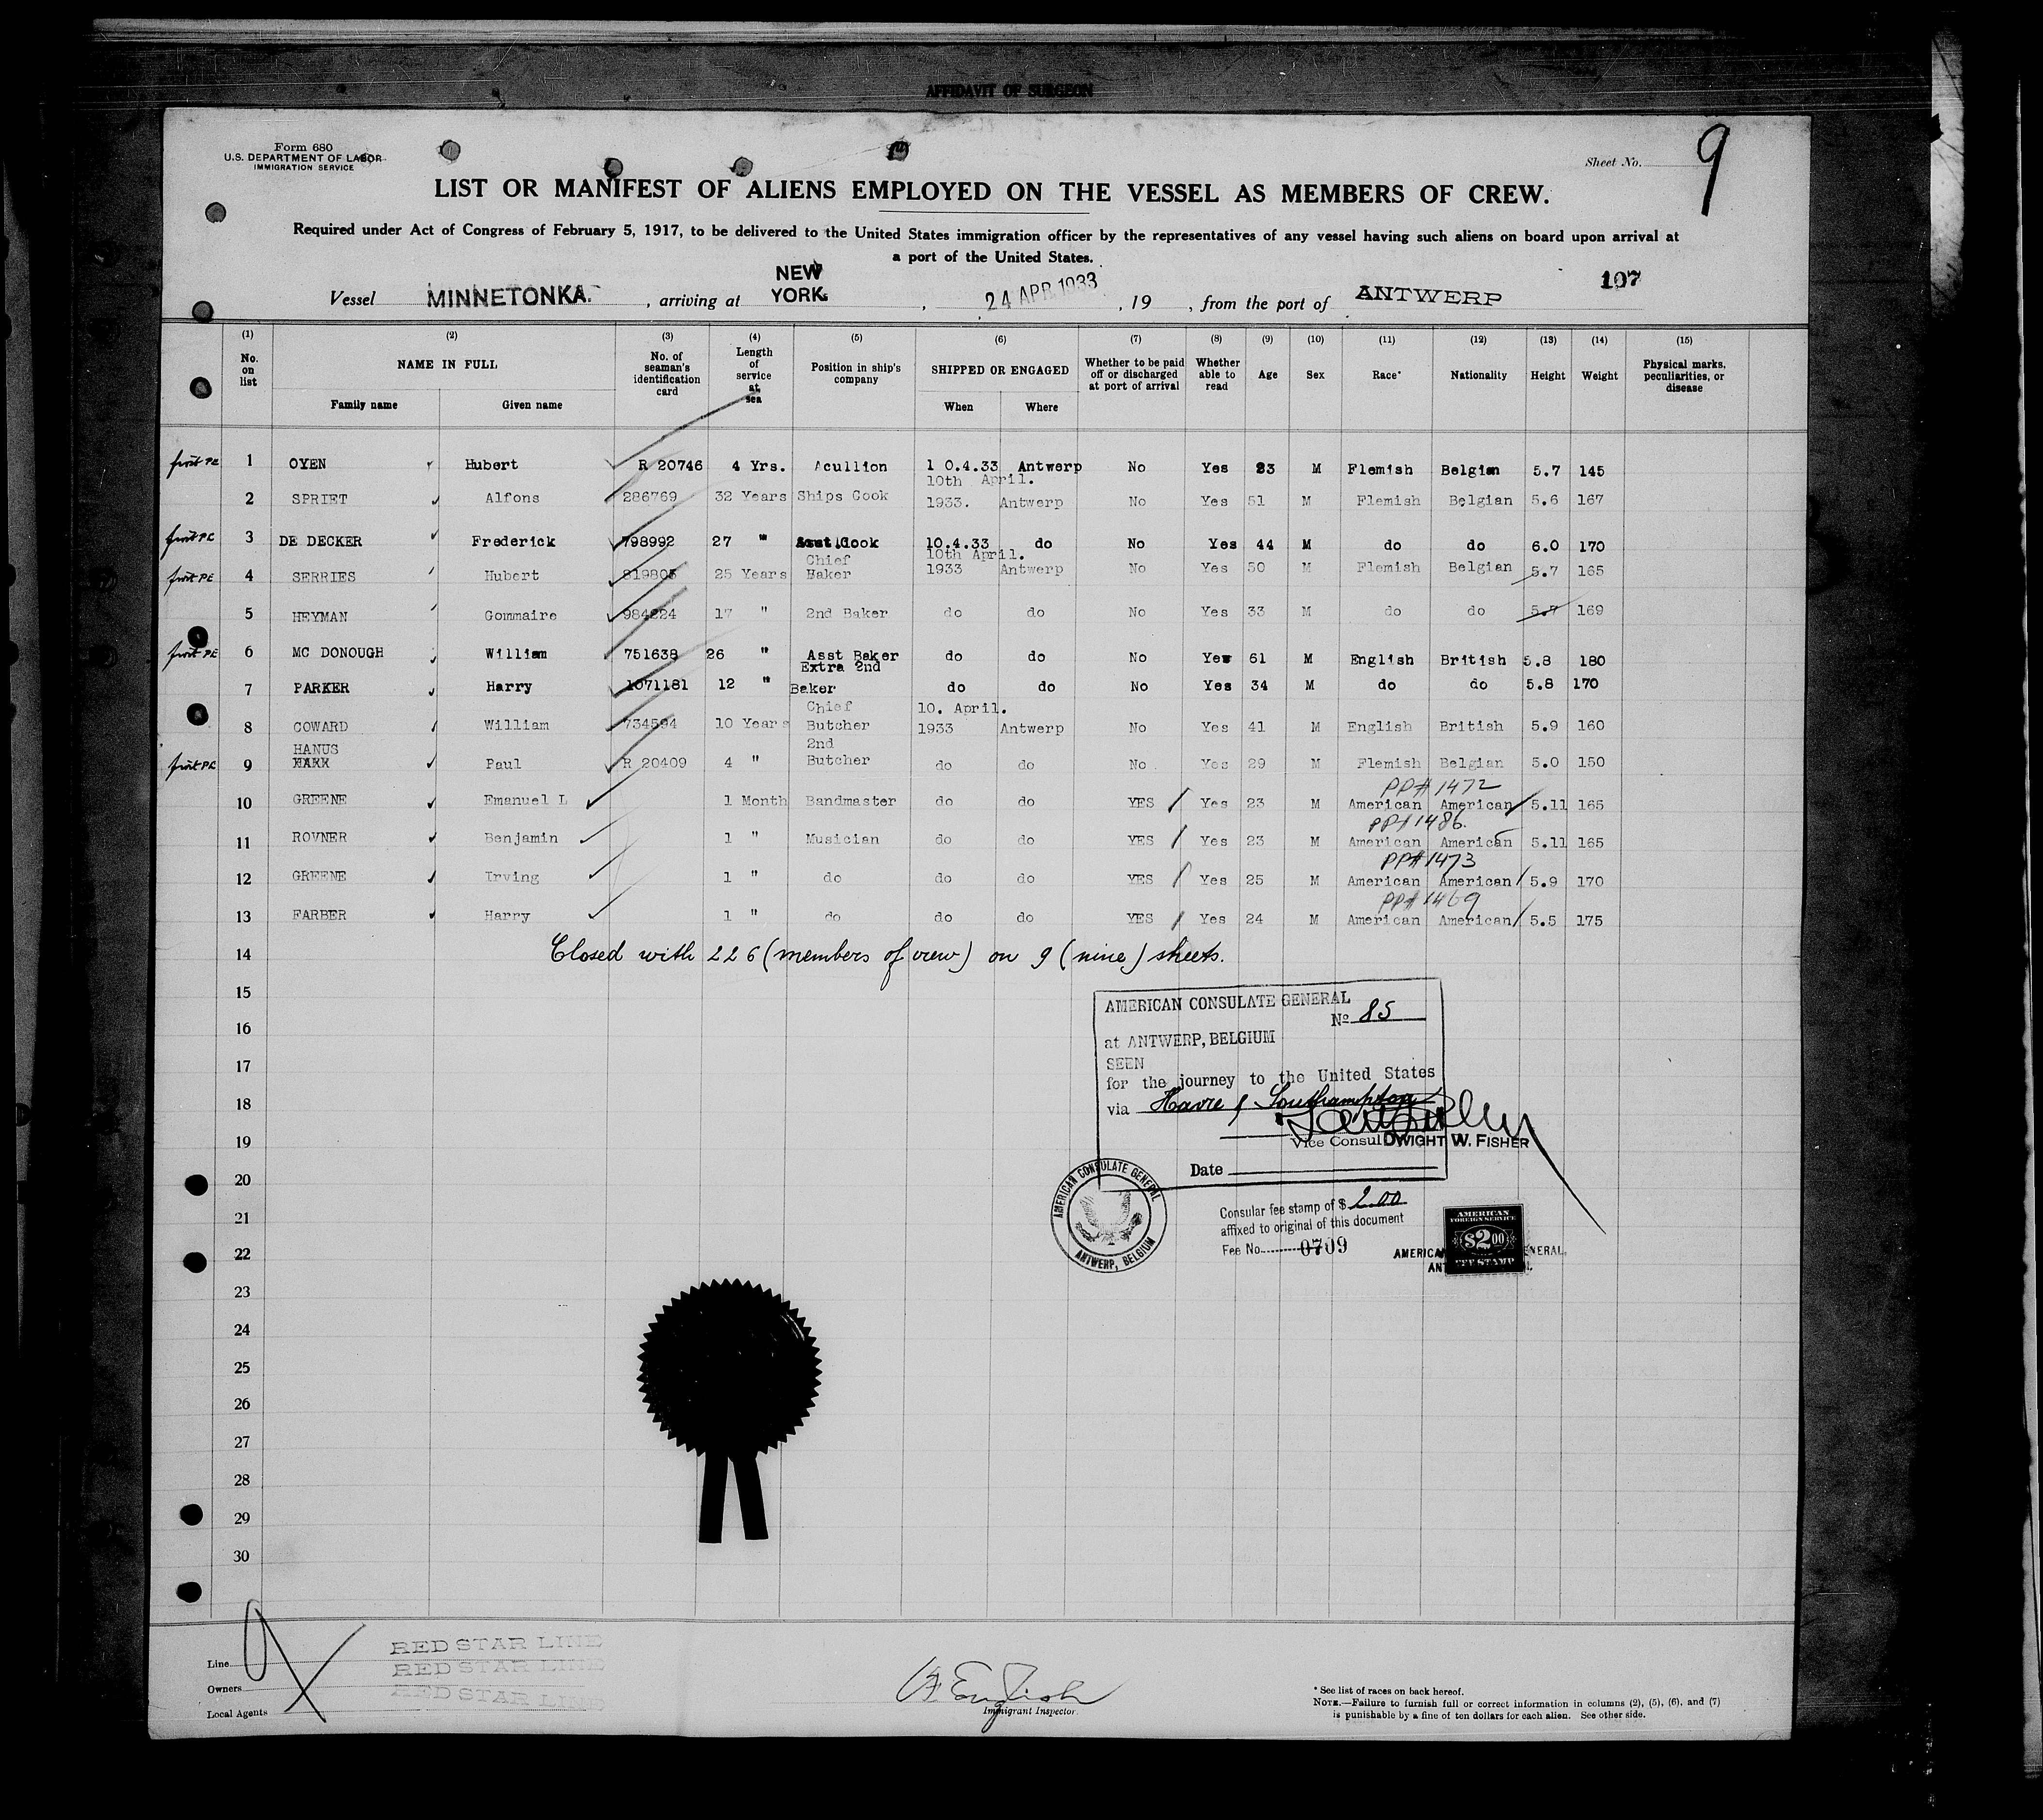 AFFIDAVIT OF SURGEON
Form 680
U.S. DEPARTMENT OF LABOR
IMMIGRATION SERVICE
Sheet No. 9
LIST OR MANIFEST OF ALIENS EMPLOYED ON THE VESSEL AS MEMBERS OF CREW.
Required under Act of Congress of February 5, 1917, to be delivered to the United States immigration officer by the representatives of any vessel having such aliens on board upon arrival at
a port of the United States.
107
Vessel MINNETONKA. , arriving at NEW YORK. , 24 APR 1933 , 19 , from the port of ANTWERP
(1) No. on list
(2) NAME IN FULL
Family name Given name
(3) No. of seaman's identification card
(4) Length of service at sea
(5) Position in ship's company
(6) SHIPPED OR ENGAGED
When Where
(7) Whether to be paid off or discharged at port of arrival
(8) Whether able to read
(9) Age
(10) Sex
(11) Race*
(12) Nationality
(13) Height
(14) Weight
(15) Physical marks, peculiarities, or disease
1 OYEN Hubert R 20746 4 Yrs. Acullion 1 0.4.33 Antwerp No Yes 23 M Flemish Belgian 5.7 145
2 SPRIET Alfons 286769 32 Years Ships Cook 10th April. 1933. Antwerp No Yes 51 M Flemish Belgian 5.6 167
3 DE DECKER Frederick 798992 27 " Cook 10.4.33 do No Yes 44 M do do 6.0 170
4 SERRIES Hubert 819805 25 Years Chief Baker 10th April. 1933 Antwerp No Yes 50 M Flemish Belgian 5.7 165
5 HEYMAN Gommaire 984224 17 " 2nd Baker do do No Yes 33 M do do 5.7 169
6 MC DONOUGH William 751638 26 " Asst Baker do do No Yes 61 M English British 5.8 180
7 PARKER Harry 1071181 12 " Extra 2nd Baker do do No Yes 34 M do do 5.8 170
8 COWARD William 734594 10 Years Chief Butcher 10. April. 1933 Antwerp No Yes 41 M English British 5.9 160
9 HANUS Paul R 20409 4 " 2nd Butcher do do No. Yes 29 M Flemish Belgian 5.0 150
PP# 1472
10 GREENE Emanuel L 1 Month Bandmaster do do YES Yes 23 M American American 5.11 165
PP# 1486.
11 ROVNER Benjamin 1 " Musician do do YES Yes 23 M American American 5.11 165
PP# 1473
12 GREENE Irving 1 " do do do YES Yes 25 M American American 5.9 170
PP# 1469
13 FARBER Harry 1 " do do do YES Yes 24 M American American 5.5 175
14 Closed with 226 (members of crew) on 9 (nine) sheets.
15
16
17
18
19
20
21
22
23
24
25
26
27
28
29
30
AMERICAN CONSULATE GENERAL
No 85
at ANTWERP, BELGIUM
SEEN
for the journey to the United States
via Havre & Southampton
Vice Consul DWIGHT W. FISHER
Date
AMERICAN CONSULATE GENERAL
ANTWERP, BELGIUM
Consular fee stamp of $ 2.00
affixed to original of this document
Fee No. 0709
AMERICAN FOREIGN SERVICE
$2.00
FEE STAMP
Line RED STAR LINE
Owners RED STAR LINE
Local Agents RED STAR LINE
Immigrant Inspector.
* See list of races on back hereof.
NOTE.—Failure to furnish full or correct information in columns (2), (5), (6), and (7)
is punishable by a fine of ten dollars for each alien. See other side.